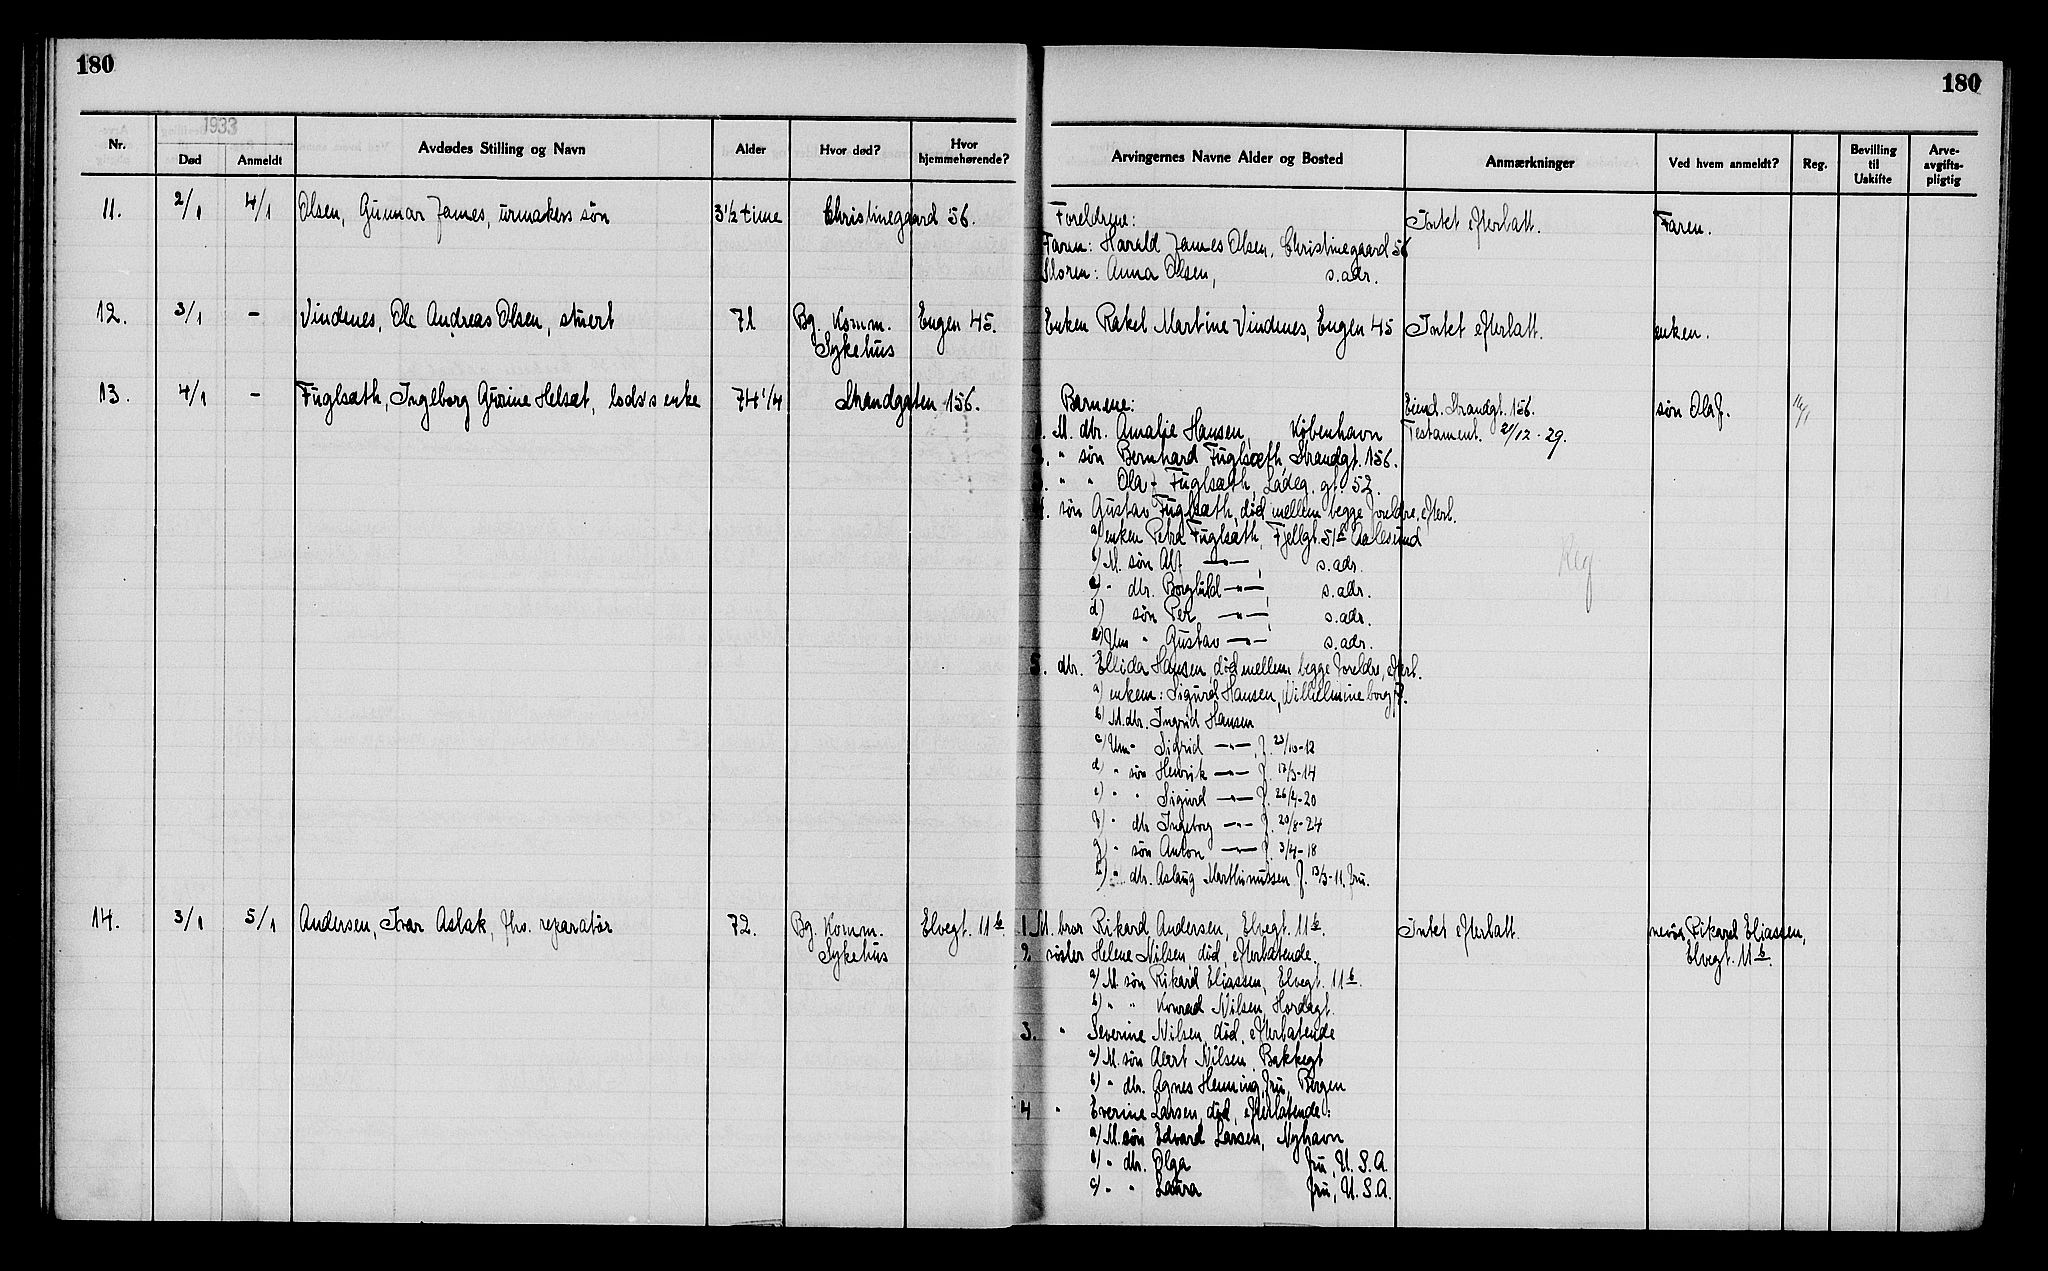 180
180
1933
Nr. Død Anmeldt Avdødes Stilling og Navn Alder Hvor død? Hvor hjemmehørende? Arvingernes Navne Alder og Bosted Anmærkninger Ved hvem anmeldt? Reg. Bevilling til Uskifte Arve-avgifts-pligtig
11. 2/1 4/1 Olsen, Gunnar James, urmakers søn 3½ time Christinegaard 56. Foreldrene: Intet efterlatt. Faren.
Faren: Harald James Olsen, Christinegaard 56
Moren: Anna Olsen, s. adr.
12. 3/1 - Vindenes, Ole Andreas Olsen, stuert 71 Bg. Komm. Engen 45. Enken Rakel Martine Vindenes, Engen 45 Intet efterlatt. enken.
Sykehus
13. 4/1 - Fuglsæth, Ingeborg Gurine Helsæt, lods's enke 74 1/4 Strandgaten 156. Barnene: Eiend. Strandgt. 156. søn Olaf.
M. dtr. Amalie Hansen, København Testament. 2/12-29.
" søn Bernhard Fuglsæth, Strandgt. 156.
" " Olaf Fuglsæth, Ladeg. gt. 52.
søn Gustav Fuglsæth, død mellem begge foreldre, efterl.
a) enken Petra Fuglsæth, Fjellgt. 51 b Aalesund
b) M. søn Alf —"—, s. adr.
c) " dtr. Borghild —"—, s. adr.
d) søn Per —"—, s. adr.
e) Um " Gustav —"— s. adr.
Reg
5. dtr. Ellida Hansen, død mellem begge foreldre, efterl.
a) enkem: Sigurd Hansen, Wilhelmineborg
b) M. dtr. Ingrid Hansen
c) Um " Sigrid —"—, f. 23/10-12
d) " søn Henrik —"— f. 17/3-14
e) " " Sigurd —"— f. 26/4-20
f) " dtr. Ingeborg —"— f. 20/8-24
g) " søn Anton —"— f. 3/4-18
h) " dtr. Aslaug Marthinussen f. 13/3-11, fru.
14. 3/1 5/1 Andersen, Ivar Aslak, fhv. reparatør 72. Bg. Komm. Elvegt. 11 b. 1. M. bror Rikard Andersen, Elvegt. 11 b. Intet efterlatt. nevø Rikard Eliassen,
Sykehus 2 søster Helene Nilsen død, efterlatende. Elvegt. 11 b.
a) M. søn Rikard Eliassen, Elvegt. 11 b.
b) " " Konrad Nilsen, Hordagt.
3. " Severine Nilsen, død, efterlatende
a) M. søn Alert Nilsen, Bakkegt
b) " dtr. Agnes Henning, fru, Bergen
4 " Everine Larsen, død, efterlatende:
a) M. søn Edvard Larsen, Nyhavn
b) " dtr. Olga fru, U. S. A.
c) " " Laura fru, U. S. A.